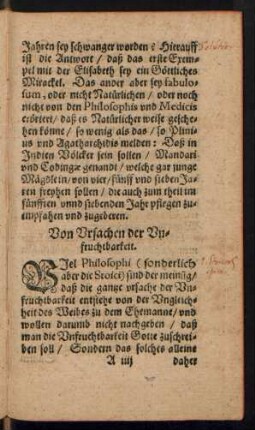 Jahren sey schwanger worden? Hierauff
ist die Antwort / daß das erste Exem-
pel mit der Elisabeth sey ein Göttliches
Mirackel. Das ander aber sey fabulo-
sum, oder nicht Natürlichen / oder noch
nicht von den Philosophis vnd Medicis
erörtert / daß es Natürlicher weise gesche-
hen könne / so wenig als das / so Plini-
us vnd Agatharchidis melden: Daß in
Indien Völcker sein sollen / Mandari
vnd Codingæ genandt / welche gar junge
Mägdlein / von vier / fünff vnd sieben Ja-
ren freyhen sollen / die auch zum theil im
fünfften vnnd siebenden Jahr pflegen zu-
empfahen vnd zugeberen.
Von Vrsachen der Vn-
fruchtbarkeit.
VJel Philosophi (sonderlich
aber die Stoici) sind der meinũg /
daß die gantze vrsache der Vn-
fruchtbarkeit entstehe von der Vngleich-
heit des Weibes zu dem Ehemanne / vnd
wollen darumb nicht nachgeben / daß
man die Vnfruchtbarkeit Gotte zuschrei-
ben soll / Sondern das solches alleine
A iiij daher